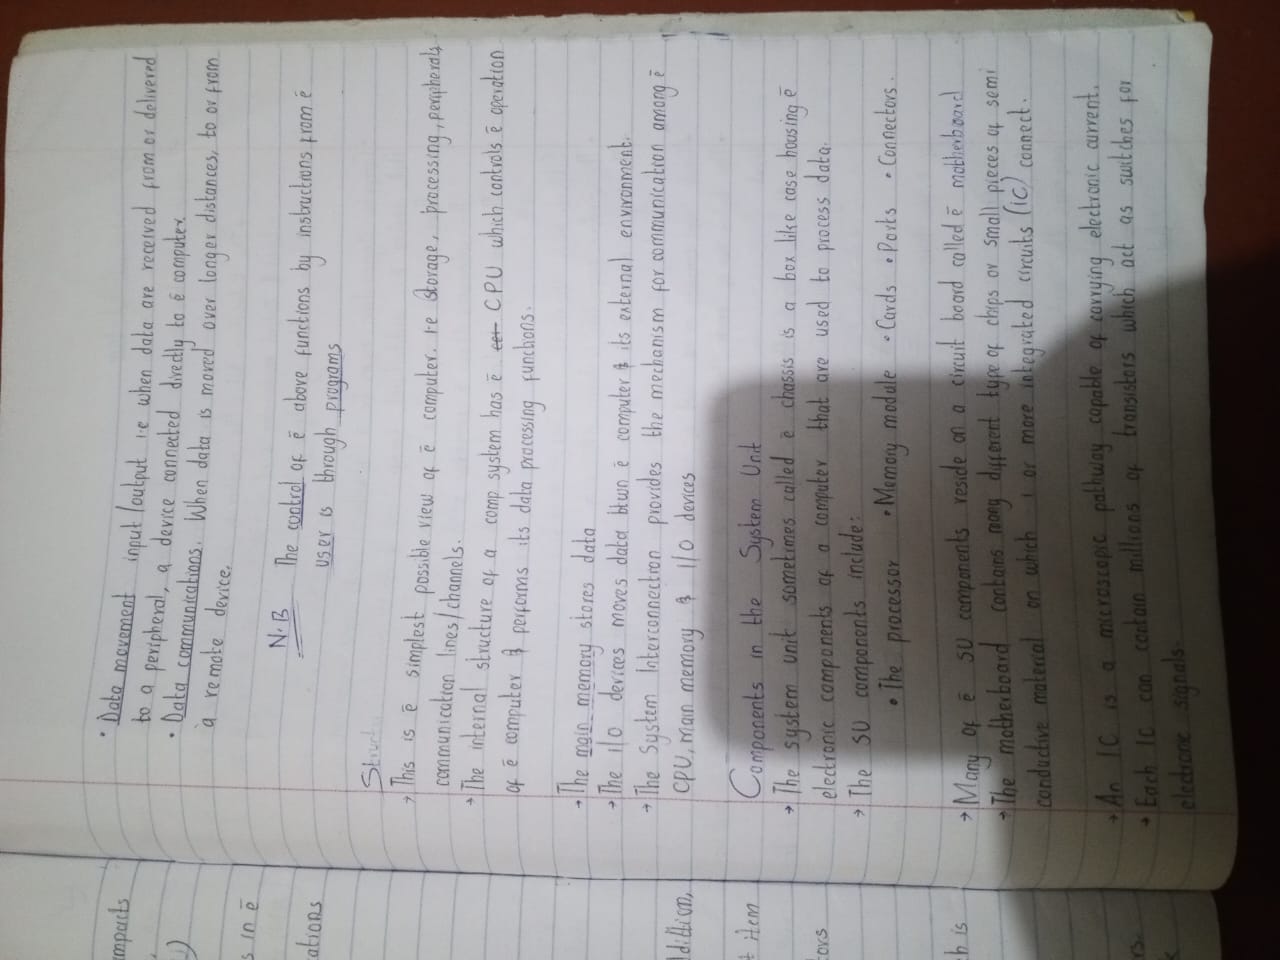 impacts
s in ē
cations
ddition,
t item
tors
ch is
rs.
• Data movement input/output i.e when data are received from or delivered
to a peripheral, a device connected directly to ē computer.
• Data communications. When data is moved over longer distances, to or from
a remote device.
N.B The control of ē above functions by instructions from ē
user is through programs
Struct
→ This is ē simplest possible view of ē computer. i-e Storage, processing, peripherals
communication lines/channels.
→ The internal structure of a comp system has ē CPU which controls ē operation
of ē computer & performs its data processing functions.
→ The main memory stores data
→ The I/O devices moves data btwn ē computer & its external environment.
→ The System Interconnection provides the mechanism for communication among ē
CPU, main memory & I/O devices
Components in the System Unit
→ The system unit sometimes called ē chassis is a box like case housing ē
electronic components of a computer that are used to process data.
→ The SU components include:
• The processor • Memory module • Cards • Ports • Connectors.
→ Many of ē SU components reside on a circuit board called ē motherboard
→ The motherboard contains many different type of chips or small pieces of semi
conductive material on which 1 or more integrated circuits (IC) connect.
→ An IC is a microscopic pathway capable of carrying electronic current.
→ Each IC can contain millions of transistors which act as switches for
electronic signals.